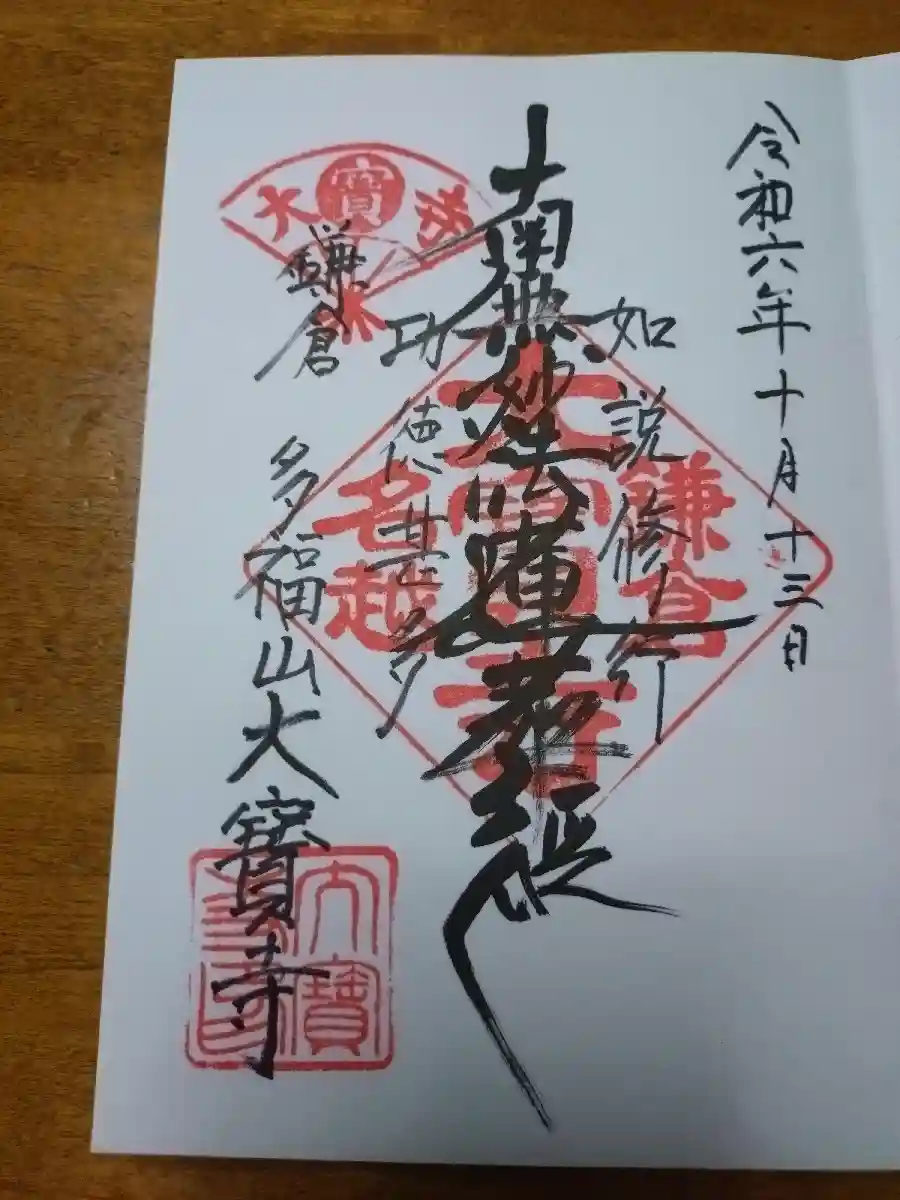 令和六年十月十三日
如説修行
南無妙法蓮華経
功徳甚多
鎌倉
多福山大寶寺
大寶
鎌倉
大寶寺
名越
大寶
寺印